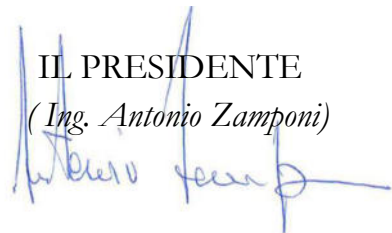 IL PRESIDENTE
( Ing. Antonio Zamponi)
Antonio Zamponi